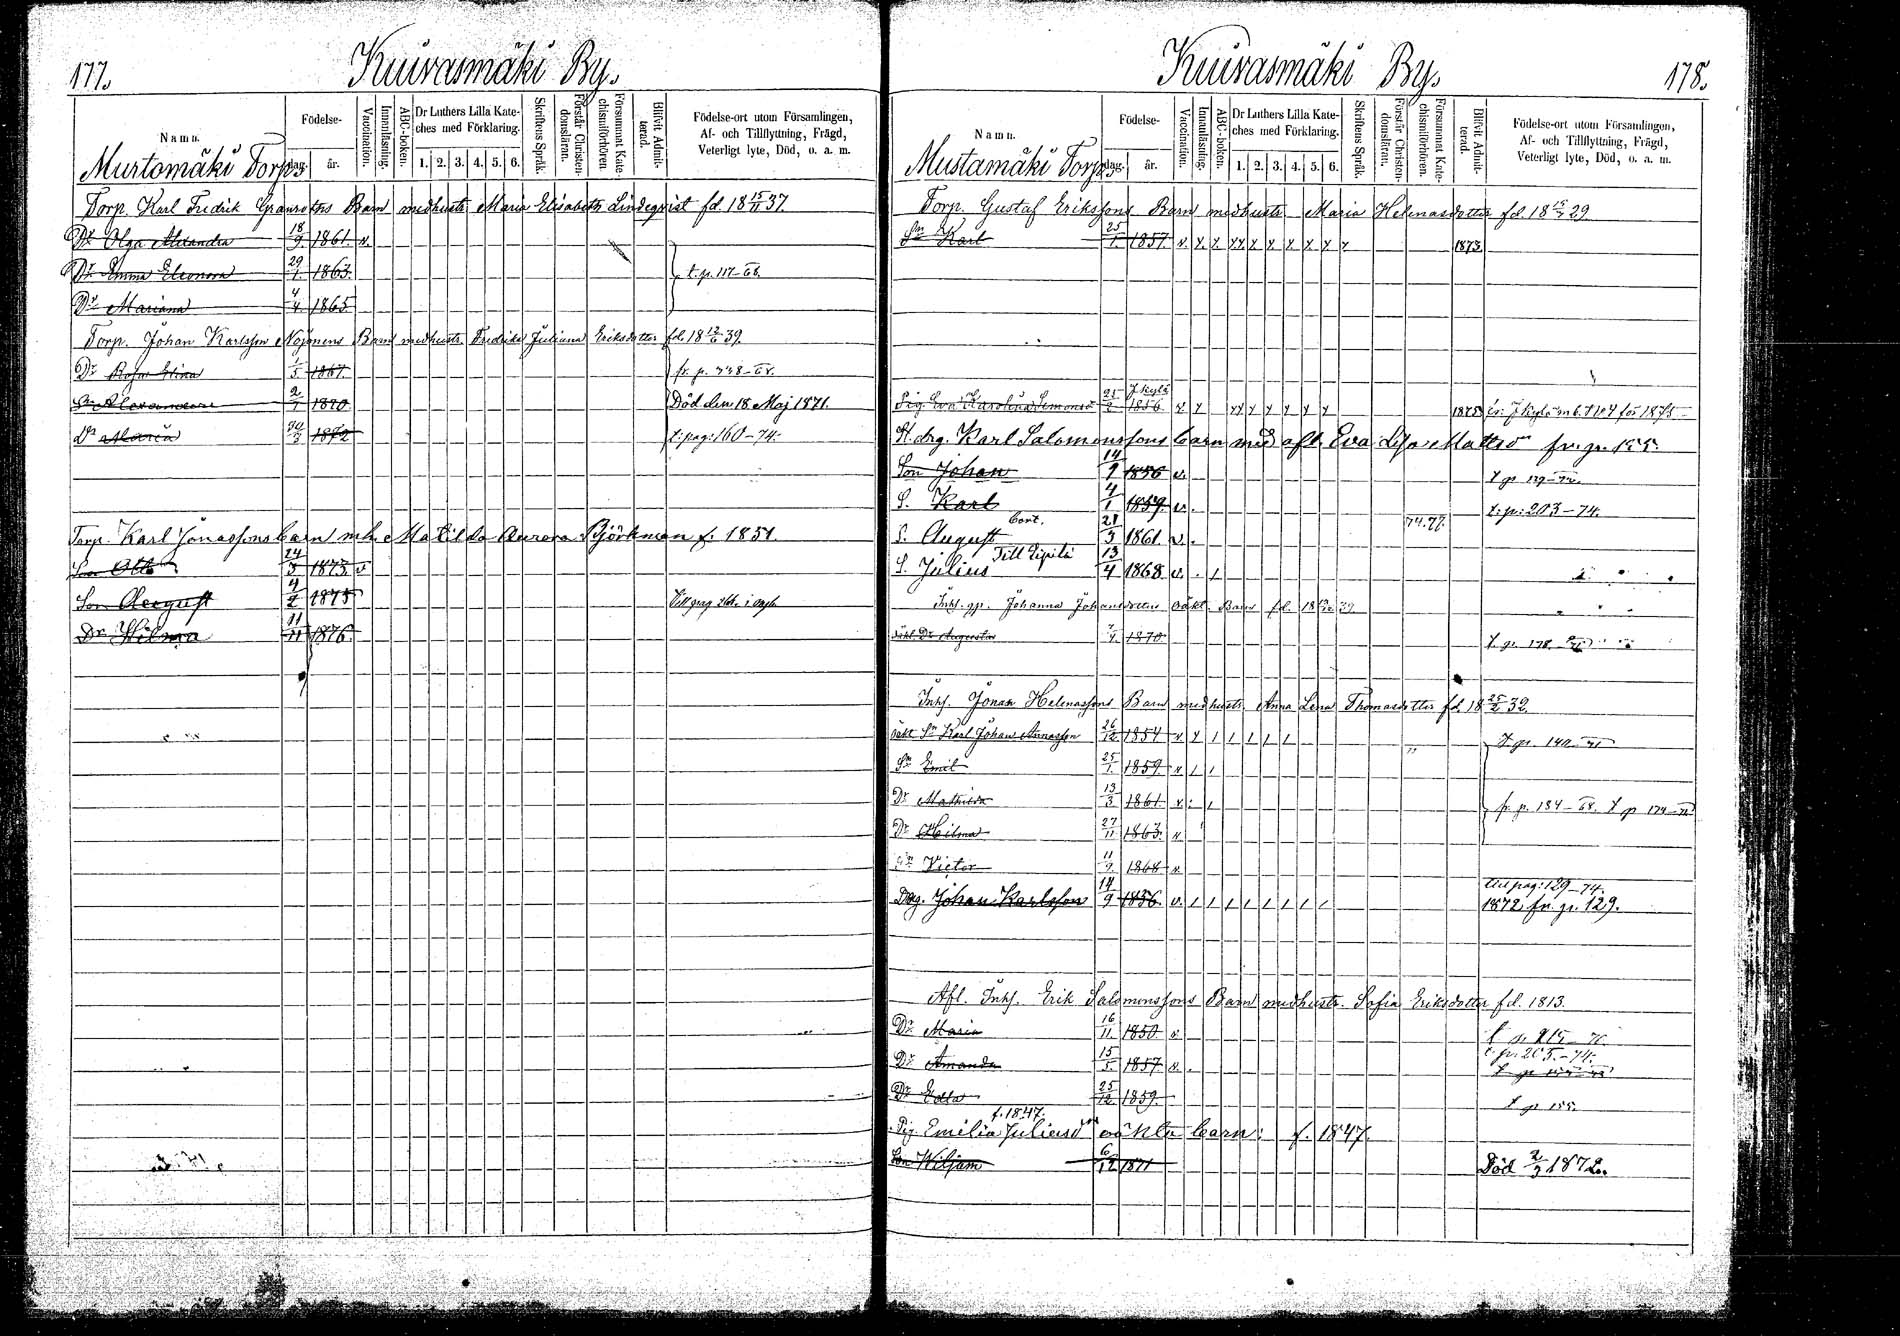 177.
Kuivasmäki By.
Namn.
Födelse-
dag.
år.
Vaccination.
Innanläsning.
ABC-boken.
Dr Luthers Lilla Kate-
ches med Förklaring.
1. 2. 3. 4. 5. 6.
Skriftens Språk.
Förstår Christen-
domsläran.
Försummat Kate-
chismiförhören.
Blifvit Admit-
terad.
Födelse-ort utom Församlingen,
Af- och Tillflyttning, Frägd,
Veterligt lyte, Död, o. a. m.
Murtomäki Torp
Torp. Karl Fredrik Granroths Barn medhustr. Maria Elisabeth Lindeqvist fd. 18 15/11 37.
Dr Olga Alexandra 18/9 1861. v.
Dr Emma Eleonora 29/1. 1863. t. p. 117-68.
Dr Mariana 4/4. 1865
Torp. Johan Karlsson Nöjonens Barn medhustr. Fredrika Juliana Eriksdotter fd. 18 12/6 39.
Dr Rosa Elina 1/5 1867. fr. p. 338-68.
Sn Alexander 2/1 1870 Död den 18 Maj 1871.
Dr Maria 30/3 1872 t: pag: 160-74.
Torp. Karl Jonassons barn mh. Matilda Aurora Björkman f. 1851.
Son Otto 24/3 1873. v
Son August 4/2 1875 Till pag 266. i
Dr Hilma 11/11 1876
178.
Kuivasmäki By.
Namn.
Födelse-
dag.
år.
Vaccination.
Innanläsning.
ABC-boken.
Dr Luthers Lilla Kate-
ches med Förklaring.
1. 2. 3. 4. 5. 6.
Skriftens Språk.
Förstår Christen-
domsläran.
Försummat Kate-
chismiförhören.
Blifvit Admit-
terad.
Födelse-ort utom Församlingen,
Af- och Tillflyttning, Frägd,
Veterligt lyte, Död, o. a. m.
Mustamäki Torp
Torp. Gustaf Erikssons Barn medhustr. Maria Helenasdotter fd. 18 29
Sn Karl 25/1. 1857. v. x x xx x x x x x x 1873
Pig. Eva Karolina Simonsd 25/2 1856 x x xx x x x x x 1875
St. drg. Karl Salomonssons barn med afl. Eva Lisa Mattsd fr. p. 155.
Son Johan 14/9 1856 v. t p 129-72.
S. Karl 4/1 1859. v. t: p: 203-74.
S. August bort. 21/3 1861. v. 74. 77.
S. Julius Till Sipilä 13/4 1868 v.
Inhs. gp. Johanna Johansdotters oäkt. Barn fd. 18 39
oäkt. Dr Augusta 7/4 1870 t. p. 178.
Inhs. Jonas Helenassons Barn medhustr. Anna Lena Thomasdotter fd. 18 25/2 32
oäkt Sn Karl Johan Annasson 26/12 1854 v x 1 1 1 1 1 t p. 140-71
Sn Emil 25/1. 1859. v 1 1
Dr Mathilda 13/3 1861. v. fr. p. 184-68. t p 174-72
Dr Hilma 27/11 1863. v.
Sn Victor 11/9 1868 v.
pag: 129-74.
Drg. Johan Karlsson 14/9 1856. v. 1 1 1 1 1 1 1 1 1872 fr. p. 129.
Afl. Inhs. Erik Salomonssons Barn medhustr. Sofia Eriksdotter fd. 1813.
Dr Maria 16/11. 1850. v.
Dr Amanda 15/5. 1857. v. t. p: 205.-74.
Dr Edla 25/12. 1859. t p 155.
f. 1847.
Pig Emilia Juliusd oäkta barn: f. 1847.
Son Wiljam 6/12 1871 Död 2/3 1872.